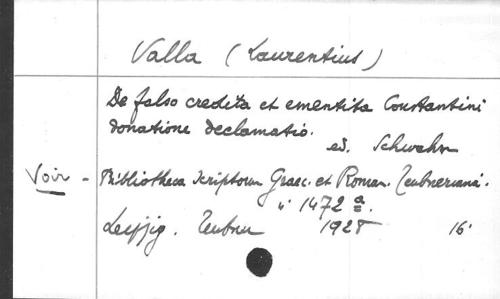 Valla (Laurentius)
De falso credita et ementita Constantini
donatione declamatio.
ed. Schwahn
Voir - Bibliotheca Scriptorum Graec. et Roman. Teubneriana.
n° 1472 a.
Leipzig. Teubner 1928 16°